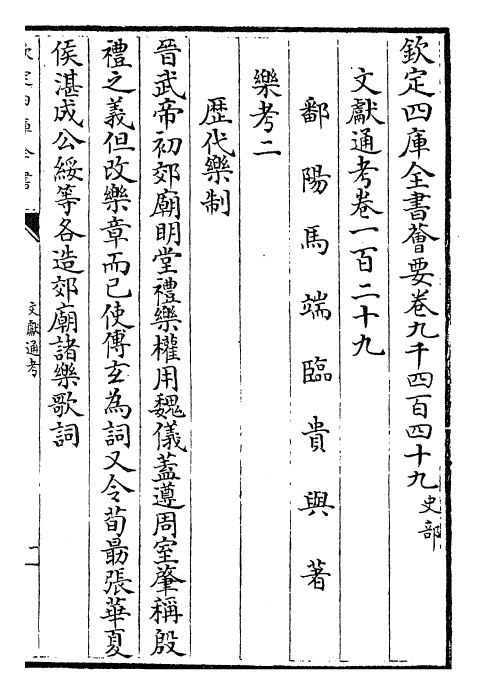 欽定四庫全書薈要卷九千四百四十九史部
文獻通考卷一百二十九
鄱陽馬端臨貴與著
樂考二
歴代樂制
晉武帝初郊廟明堂禮樂權用魏儀蓋遵周室肇稱殷
禮之義但改樂章而已使傅玄為詞又令荀勗張華夏
侯湛成公綏等各造郊廟諸樂歌詞
文獻通考